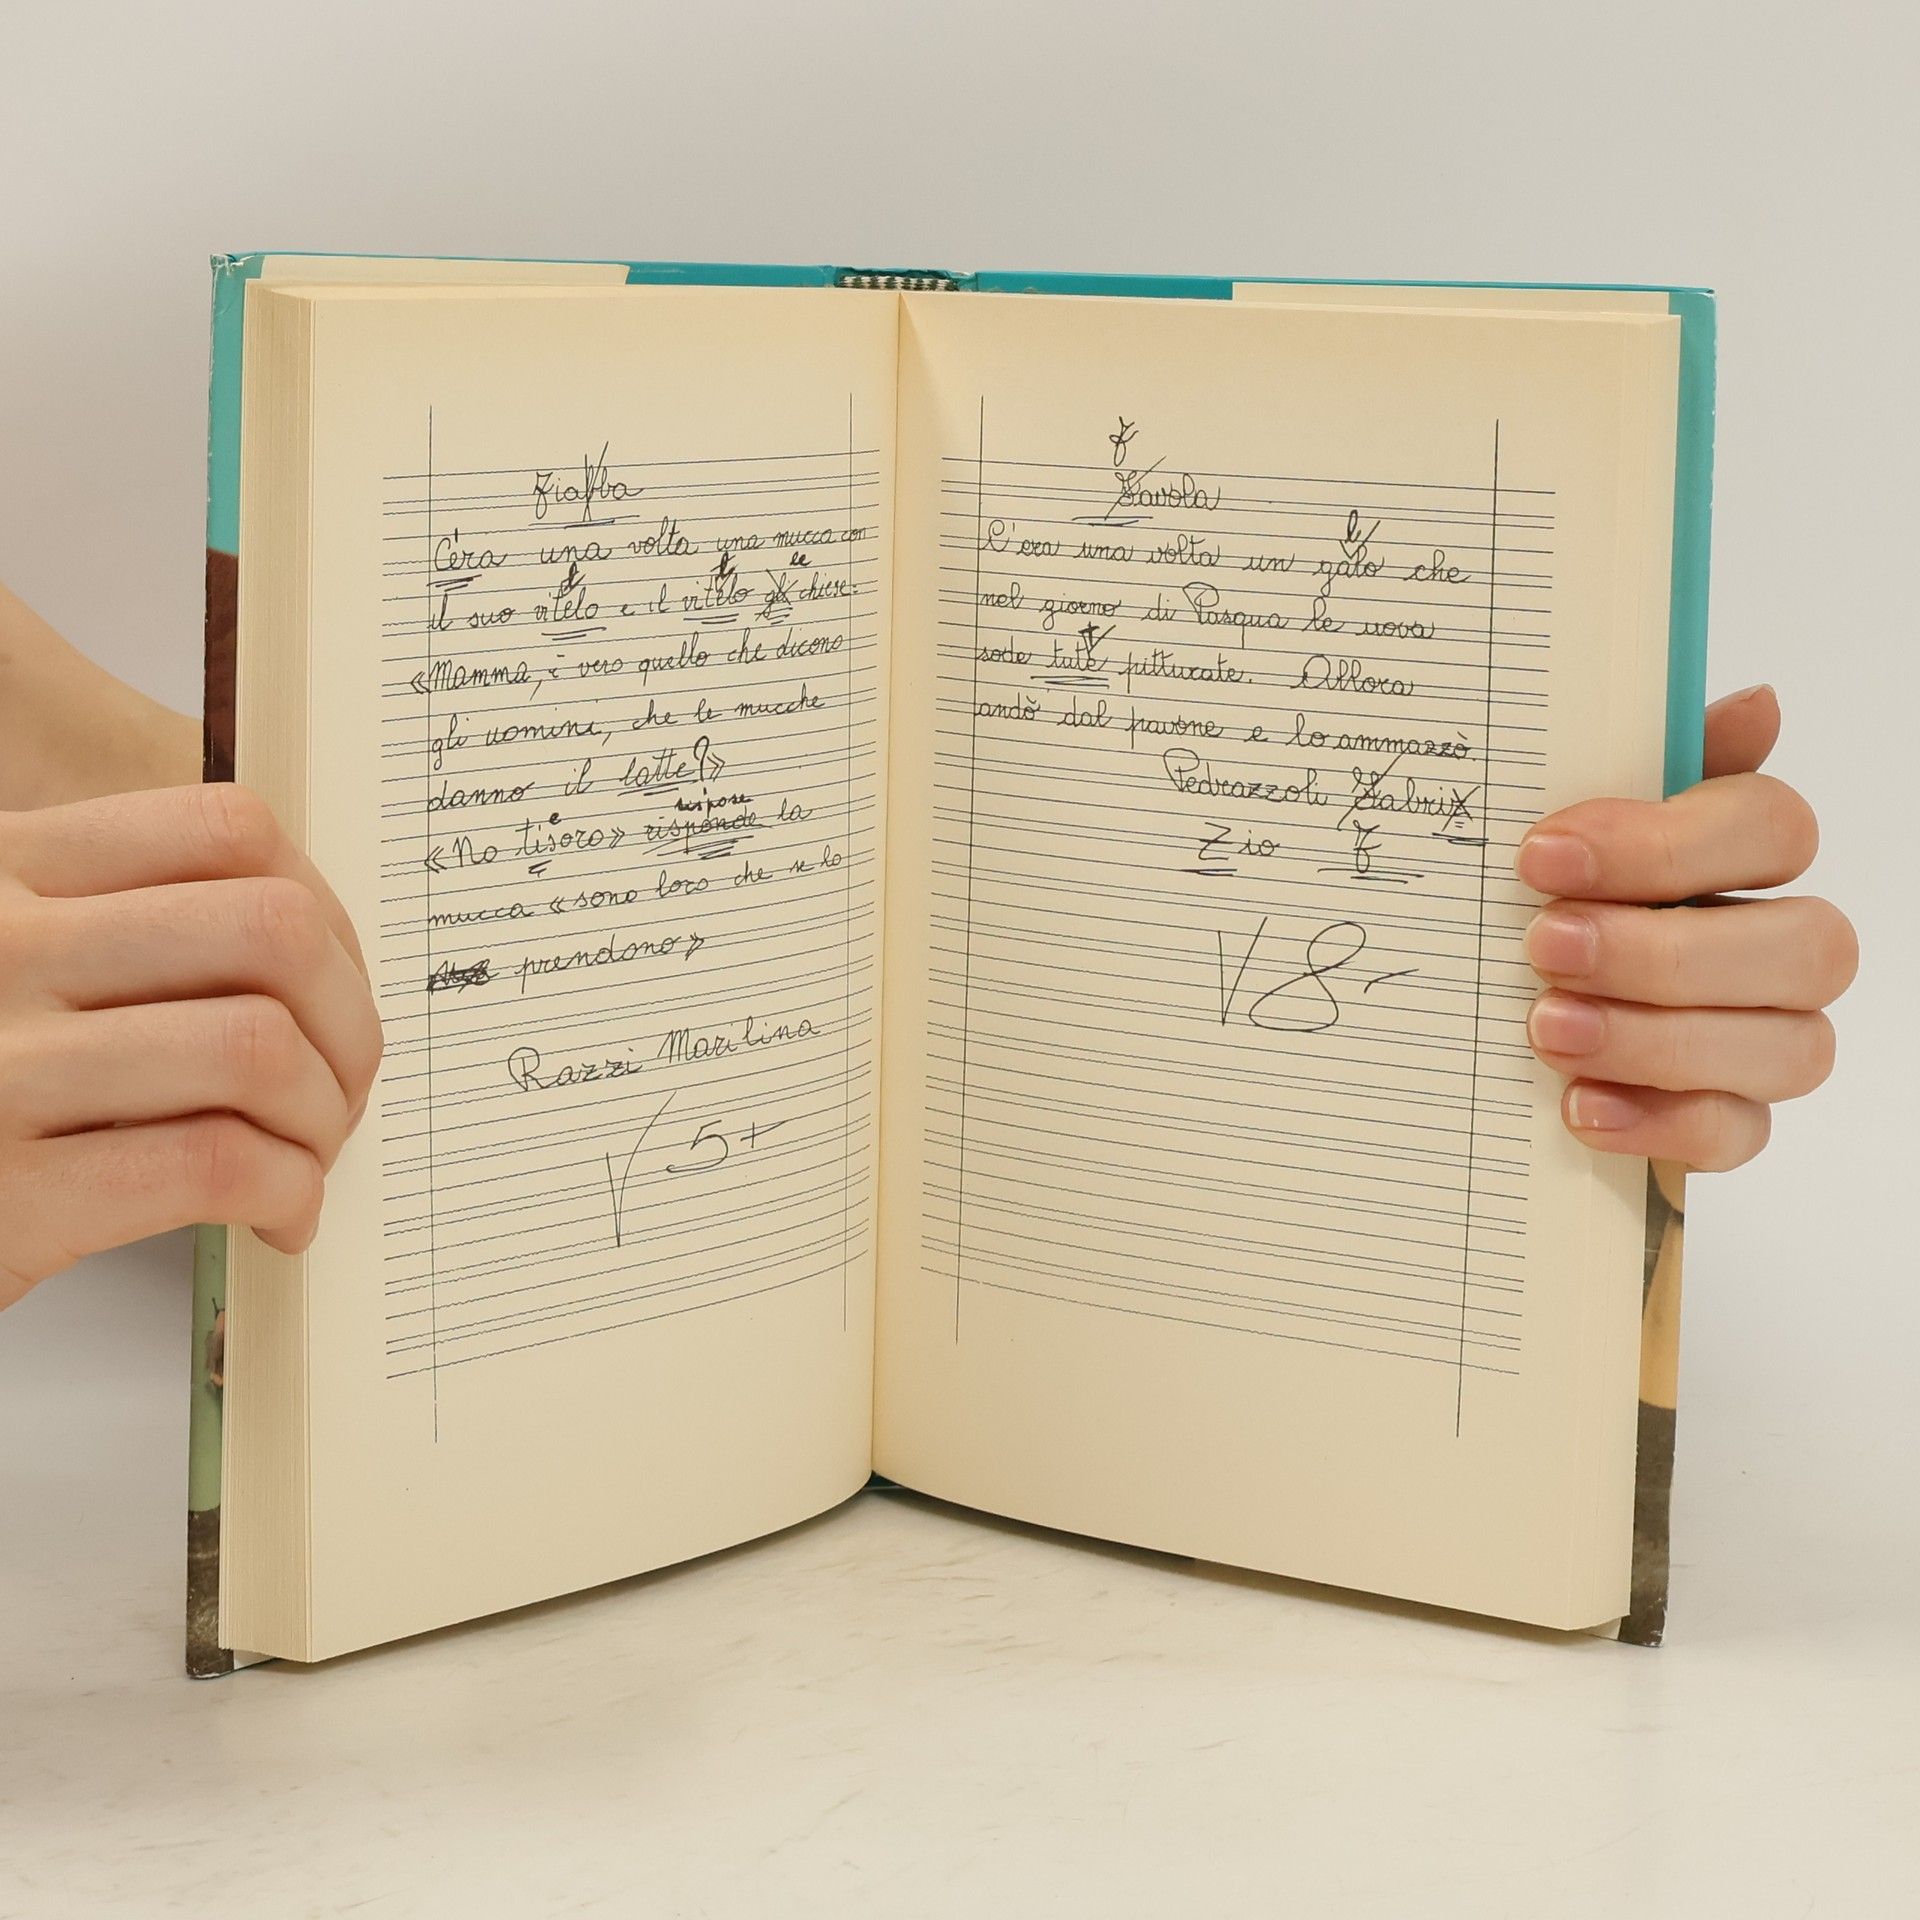 Fiabba
C'era una volta una mucca con
l l le
il suo vitelo e il vitelo gli chiese:
«Mamma, è vero quello che dicono
gli uomini, che le mucche
danno il latte?»
rispose
e
«No tisoro» risponde la
mucca «sono loro che se lo
prendono»
Razzi Marilina
5+
F
Favola
l
C'era una volta un galo che
nel giorno di Pasqua le uova
t
sode tute pitturate. Allora
andò dal pavone e lo ammazzò.
Pedrazzoli Fabri
Zio F
8-